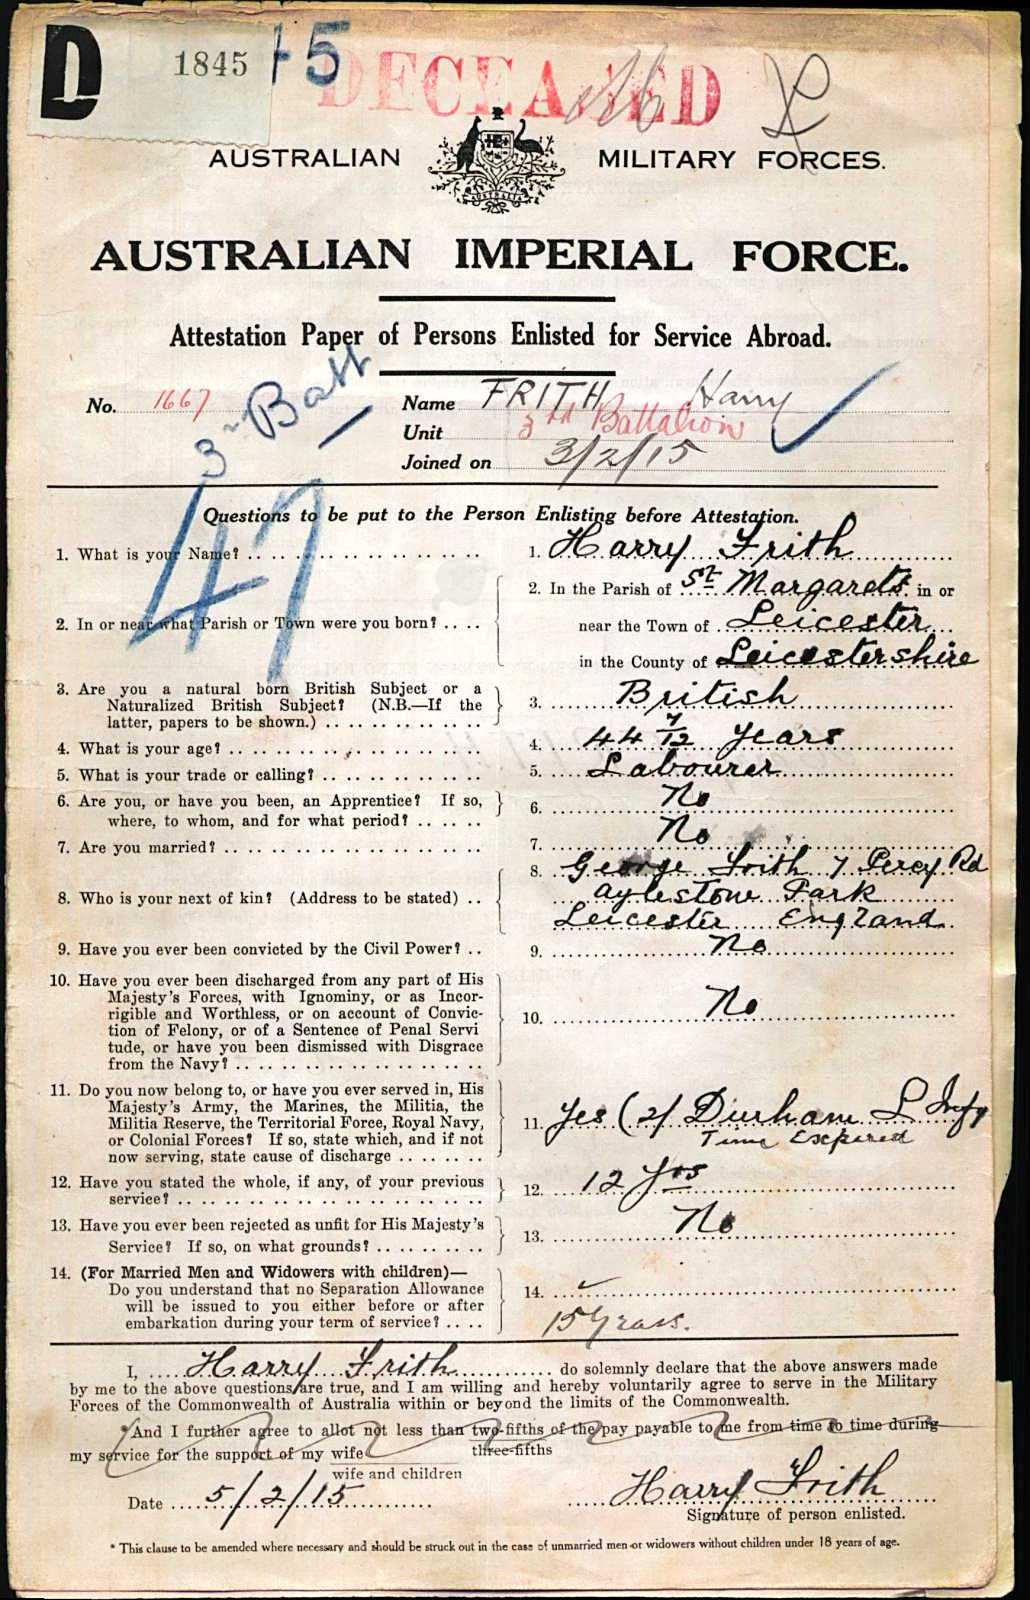 D 1845 45
DECEASED
AUSTRALIAN MILITARY FORCES.
AUSTRALIA
AUSTRALIAN IMPERIAL FORCE.
Attestation Paper of Persons Enlisted for Service Abroad.
No. 1667
3rd Batt
Name FRITH Harry
Unit 3rd Battalion
Joined on 3/2/15
47
Questions to be put to the Person Enlisting before Attestation.
1. What is your Name? 1. Harry Frith
2. In or near what Parish or Town were you born? 2. In the Parish of St Margarets in or
near the Town of Leicester
in the County of Leicestershire
3. Are you a natural born British Subject or a
Naturalized British Subject? (N.B.—If the
latter, papers to be shown.) 3. British
4. What is your age? 4. 44 7/12 Years
5. What is your trade or calling? 5. Labourer
6. Are you, or have you been, an Apprentice? If so,
where, to whom, and for what period? 6. No
7. Are you married? 7. No
8. Who is your next of kin? (Address to be stated) 8. George Frith 7 Percy Rd
Aylestone Park
Leicester England
9. Have you ever been convicted by the Civil Power? 9. No
10. Have you ever been discharged from any part of His
Majesty's Forces, with Ignominy, or as Incor-
rigible and Worthless, or on account of Convic-
tion of Felony, or of a Sentence of Penal Servi
tude, or have you been dismissed with Disgrace
from the Navy? 10. No
11. Do you now belong to, or have you ever served in, His
Majesty's Army, the Marines, the Militia, the
Militia Reserve, the Territorial Force, Royal Navy,
or Colonial Forces? If so, state which, and if not
now serving, state cause of discharge 11. Yes (2) Durham L Infy
Time Expired
12. Have you stated the whole, if any, of your previous
service? 12. 12 Yrs
13. Have you ever been rejected as unfit for His Majesty's
Service? If so, on what grounds? 13. No
14. (For Married Men and Widowers with children)—
Do you understand that no Separation Allowance
will be issued to you either before or after
embarkation during your term of service? 14.
15
I, Harry Frith do solemnly declare that the above answers made
by me to the above questions are true, and I am willing and hereby voluntarily agree to serve in the Military
Forces of the Commonwealth of Australia within or beyond the limits of the Commonwealth.
*And I further agree to allot not less than two-fifths of the pay payable to me from time to time during
three-fifths
my service for the support of my wife
wife and children
Date 5/2/15 Harry Frith
Signature of person enlisted.
* This clause to be amended where necessary and should be struck out in the case of unmarried men or widowers without children under 18 years of age.